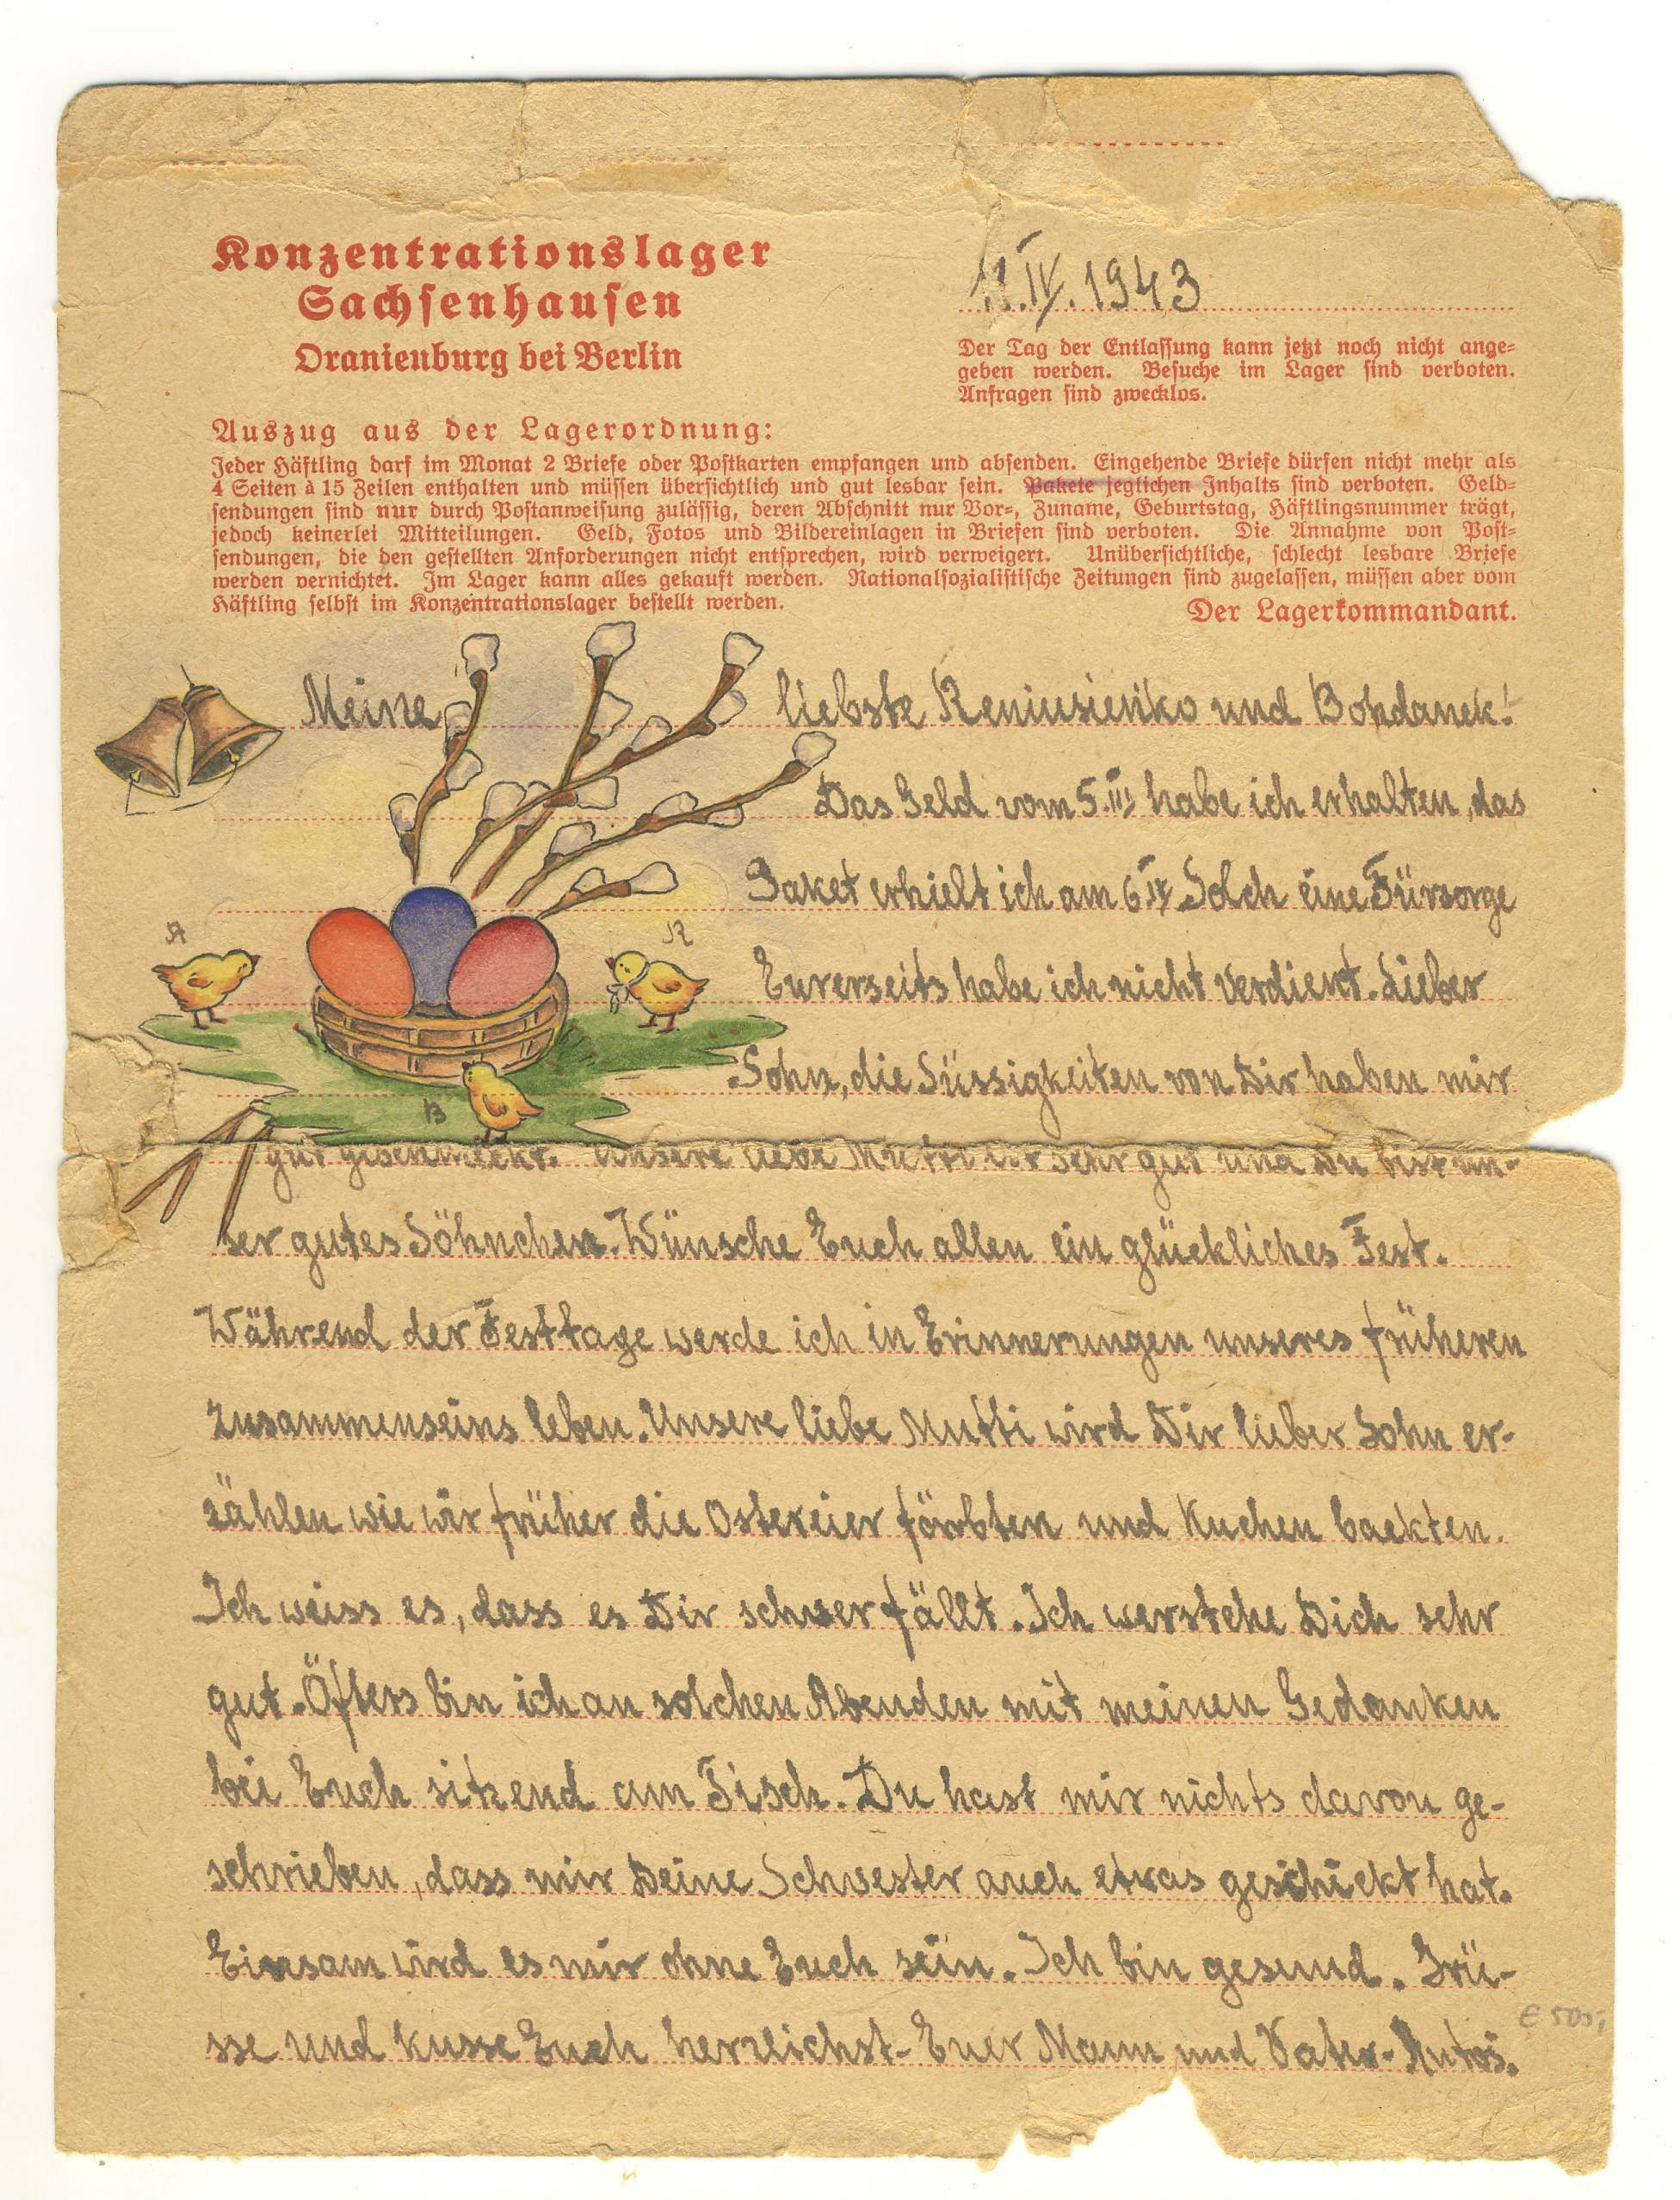 Konzentrationslager
Sachsenhausen
Oranienburg bei Berlin
11.IV.1943
Der Tag der Entlassung kann jetzt noch nicht ange=
geben werden. Besuche im Lager sind verboten.
Anfragen sind zwecklos.
Auszug aus der Lagerordnung:
Jeder Häftling darf im Monat 2 Briefe oder Postkarten empfangen und absenden. Eingehende Briefe dürfen nicht mehr als
4 Seiten à 15 Zeilen enthalten und müssen übersichtlich und gut lesbar sein. Pakete jeglichen Inhalts sind verboten. Geld=
sendungen sind nur durch Postanweisung zulässig, deren Abschnitt nur Vor=, Zuname, Geburtstag, Häftlingsnummer trägt,
jedoch keinerlei Mitteilungen. Geld, Fotos und Bildereinlagen in Briefen sind verboten. Die Annahme von Post=
sendungen, die den gestellten Anforderungen nicht entsprechen, wird verweigert. Unübersichtliche, schlecht lesbare Briefe
werden vernichtet. Im Lager kann alles gekauft werden. Nationalsozialistische Zeitungen sind zugelassen, müssen aber vom
Häftling selbst im Konzentrationslager bestellt werden.
Der Lagerkommandant.
Meine liebste Reniusieńko und Bohdanek!
Das Geld vom 5.III habe ich erhalten, das
Paket erhielt ich am 6 IV Solch eine Fürsorge
Eurerseits habe ich nicht verdient. Lieber
Sohn, die Süssigkeiten von Dir haben mir
gut geschmeckt. Unsere liebe Mutti ist sehr gut und Du bist un-
ser gutes Söhnchen. Wünsche Euch allen ein glückliches Fest.
Während der Festtage werde ich in Erinnerungen unseres früheren
Zusammenseins leben. Unsere liebe Mutti wird Dir lieber Sohn er-
zählen wie wir früher die Ostereier färbten und Kuchen backten.
Ich weiss es, dass es Dir schwer fällt. Ich werstehe Dich sehr
gut. Öfters bin ich an solchen Abenden mit meinen Gedanken
bei Euch sitzend am Tisch. Du hast mir nichts davon ge-
schrieben, dass mir Deine Schwester auch etwas geschickt hat.
Einsam wird es mir ohne Euch sein. Ich bin gesund. Grü-
sse und kusse Euch herzlichst - Euer Mann und Vater - Antoś.
A
R
B
€ 500,-